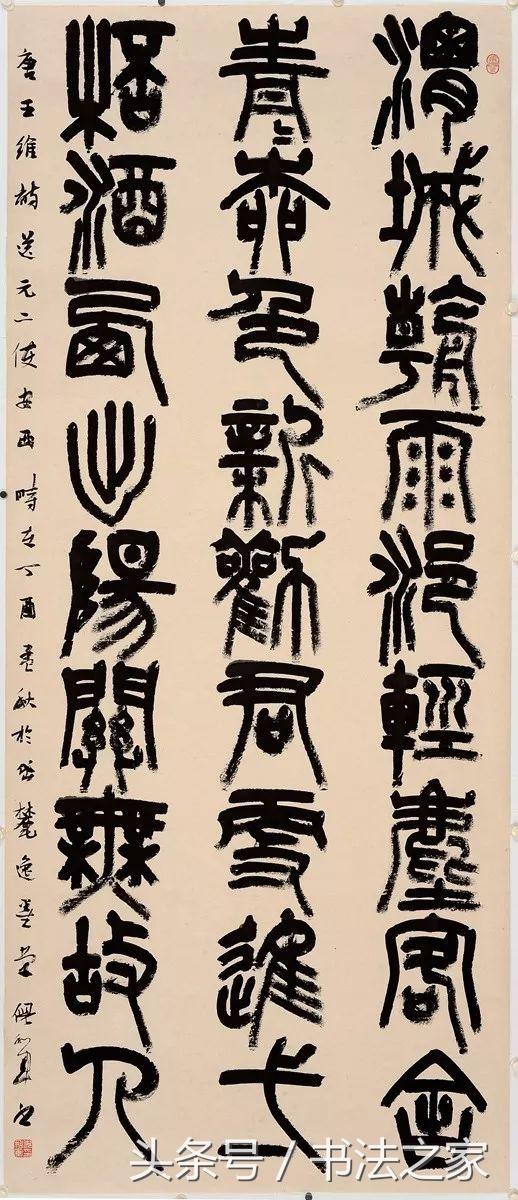 渭城朝雨浥輕塵客舍
青青柳色新勸君更進弌
桮酒西出陽關無故人
唐王維詩送元二使安西時在丁酉孟秋於岱麓逸墨堂
头条号/书法之家